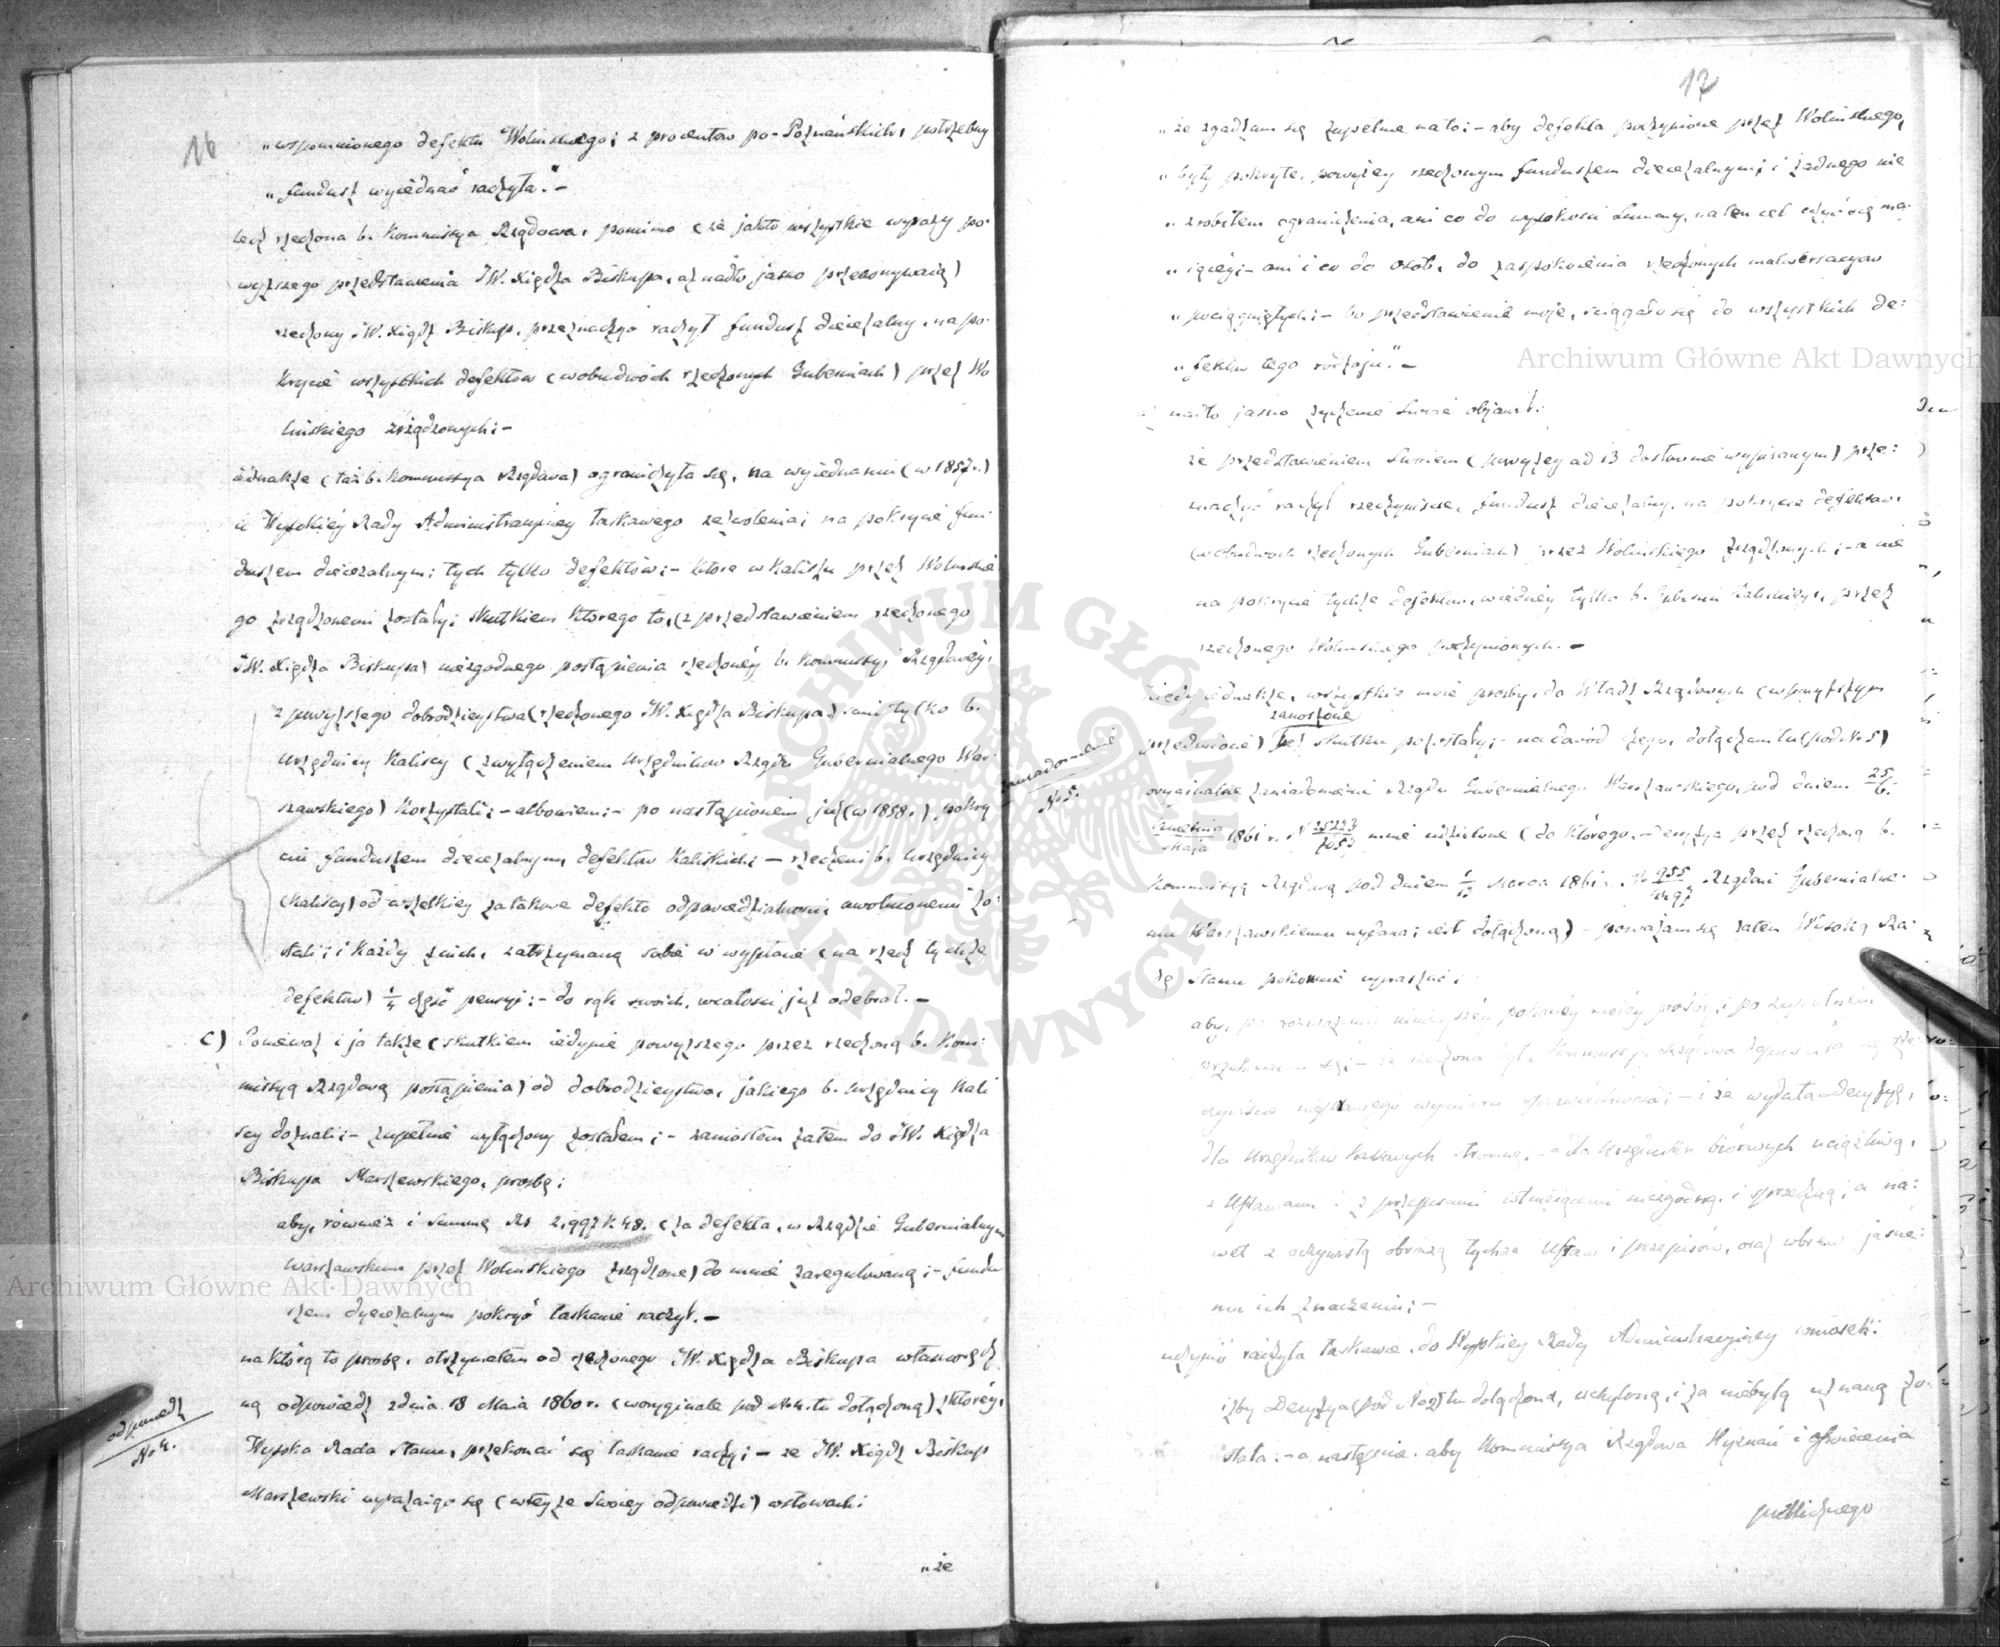 16
„wspomnionego defektu Wolinskiego; z procentów po-Poznańskich, potrzebny
„fundusz wyiednać raczyła.“ –
lecz rzeczona b. Kommissya Rządowa, pomimo (że jakto wszystkie wyrazy po-
wyższego przedstawienia JW. Xiędza Biskupa, aż nadto jasno przekonywaią)
rzeczony JW. Xiądz Biskup, przeznaczyć raczył fundusz diecezalny, na po-
krycie wszystkich defektów (w obudwóch rzeczonych Guberniach) przez Wo
linskiego zrządzonych; –
iednakże (taż b. Kommissya Rządowa) ograniczyła się, na wyiednaniu (w 1857 r.)
u Wysokiéy Rady Administracyiney łaskawego zezwolenia; na pokrycie fun-
duszem diecezalnym; tych tylko defektów; – które w Kaliszu przez Wolinskie
go zrządzonemi zostały; skutkiem którego to, (z przedstawieniem rzeczonego
JW. Xiędza Biskupa) niezgodnego postąpienia rzeczonéy b. Kommissyi Rządowéy,
z powyższego dobrodzieystwa (rzeczonego JW. Xiędza Biskupa) sami tylko b.
Urzędnicy Kaliscy (z wyłączeniem Urzędników Rządu Gubernialnego War-
szawskiego) korzystali; – albowiem; – po nastąpionem już (w 1858 r.) pokry
ciu funduszem diecezalnym, defektów Kaliskich; – rzeczeni b. Urzędnicy
(Kaliscy) od wszelkiey za takowe defekta odpowiedzialności uwolnionemi zo-
stali; i każdy z nich, zatrzymaną sobie w wypłacie (na rzecz tychże
defektów) 1/4 część pensyi; – do rąk swoich, w całości już odebrał. –
C) Ponieważ i ja także (skutkiem iedynie powyższego przez rzeczoną b. Kom-
missyą Rządową postąpienia) od dobrodzieystwa, jakiego b. Urzędnicy Kali
scy doznali; – zupełnie wyłączony zostałem; – zaniosłem zatem do JW. Xiędza
Biskupa Marszewskiego, prośbę;
aby, również i Summę Rs 2,997 k. 48. (za defekta, w Rządzie Gubernialnym
Warszawskim przez Wolinskiego zrządzone) do mnie zaregulowaną; – fundu
szem dyecezalnym pokryć łaskawie raczył. –
na którą to prośbę, otrzymałem od rzeczonego JW. Xiędza Biskupa własnoręcz
ną odpowiedź z dnia 18 Maia 1860 r. (w oryginale pod No 4. tu dołączoną) z któréy,
odpowiedź
No 4.
Wysoka Rada Stanu, przekonać się łaskawie raczy; – że JW. Xiądz Biskup
Marszewski wyrażaiąc się (w teyże swoiey odpowiedzi) w słowach:
„że
17
„że zgadzam się zupełnie na to; – aby defekta poczynione przez Wolinskiego,
„były pokryte, powyżey rzeczonym funduszem diecezalnym; i żadnego nie
„zrobiłem ograniczenia, ani co do wysokości Summy, na ten cel użyć się ma-
„iącéy; – ani i co do osób, do zaspokoienia rzeczonych malwersacyów
„pociągniętych; – bo przedstawienie moje, ściągało się do wszystkich de-
„fektów tego rodzaju.“ –
nadto jasno życzenie Swoie objawił:
że przedstawieniem Swoiem (powyżey ad B dosłownie wypisanym) prze-
znaczyć raczył rzeczywiście, fundusz diecezalny, na pokrycie defektów
(w obudwóch rzeczonych Guberniach) przez Wolinskiego zrządzonych; – a nie
na pokrycie tychże defektów, w iedney tylko b. Gubernii Kaliskiey, przez
rzeczonego Wolinskiego poczynionych. –
kiedy iednakże, wszystkie moie prośby, do Władz Rządowych (w powyższym
zanoszone
przedmiocie) bez skutku pozostały; – na dowód czego, dołączam tu (pod No 5)
zawiadomienie
No 5.
oryginalne zawiadomienie Rządu Gubernialnego Warszawskiego, pod dniem 25/6.
Kwietnia/Maja 1861 r. N 25223/7053 mnie udzielone (do którego, – Decyzya przez rzeczoną b.
Kommissyą Rządową pod dniem 1/13 Marca 1861 r. No 955/4497 Rządowi Gubernialne-
mu Warszawskiemu wydana; iest dołączoną) – poważam się zatem Wysoką Ra-
dę Stanu pokornie upraszać;
aby, po rozważeniu ninieyszéy pokornéy moiéy prośby; i po zupełnem
przekonaniu się; – że rzeczona był. Kommissya Rządowa dopuściła się rze-
czywiście niepra­wego wymiaru sprawiedliwości; – i że wydała Decyzyę,
dla Urzędników Kassowych stronną, – a dla Urzędników biórowych uciążliwą,
z Ustawami i z przepisami istnieiącemi niezgodną, i sprzeczną; a na-
wet z oczywistą obrazą tychże Ustaw i przepisów, oraz wbrew jasne-
mu ich znaczeniu; –
uczynić raczyła łaskawie, do Wysokiey Rady Administracyiney wniosek:
iżby Decyzya (pod No 2) tu dołączona, uchyloną; i za niebyłą uznaną zo-
stała; – a następnie, aby Kommissya Rządowa Wyznań i Oświecenia
publicznego
Archiwum Główne Akt Dawnych
Archiwum Główne Akt Dawnych
ARCHIWUM GŁÓWNE AKT DAWNYCH